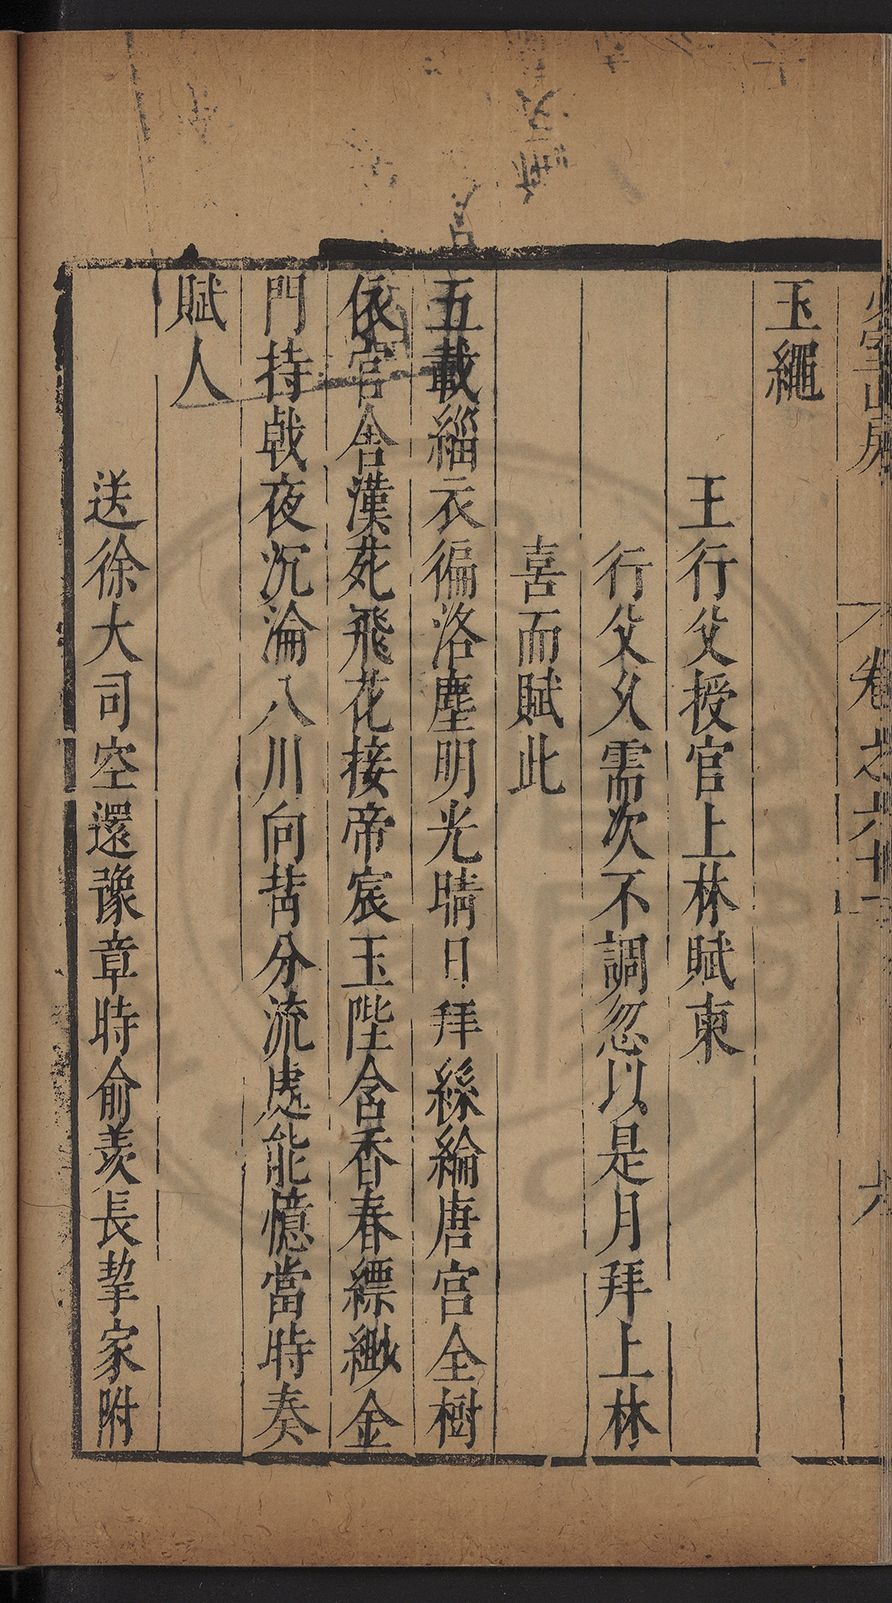 玉繩
王行父授官上林賦柬
行父久需次不調忽以是月拜上林
喜而賦此
五載緇衣徧洛塵明光晴日拜絲綸唐宮全樹
依官舍漢苑飛花接帝宸玉陛含香春縹緲金
門持戟夜沉淪八川向昔分流處能憶當時奏
賦人
送徐大司空還豫章時俞羨長挈家附